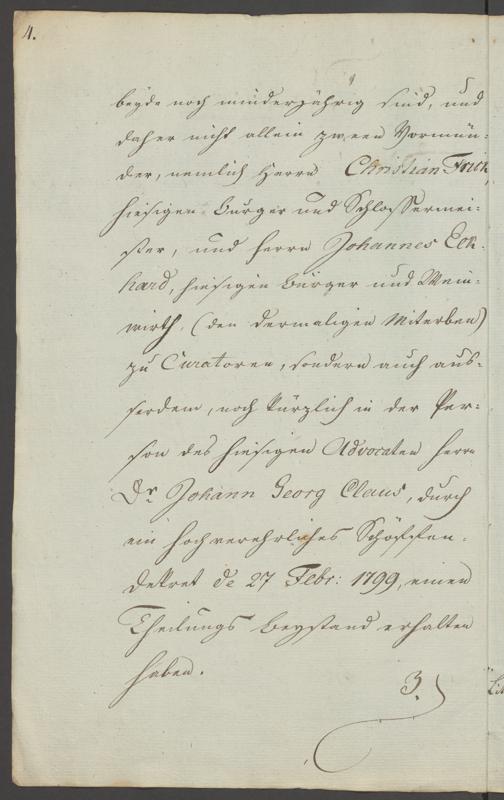 4.
beyde noch minderjährig sind, und
daher nicht allein zween Vormün-
der, nemlich Herrn Christian Frick,
hiesigen Burger und Schlossermei-
ster, und Herrn Johannes Eck-
hard, hiesigen Burger und Wein-
wirth, (den dermaligen Miterben)
zu Curatoren, sondern auch aus-
serdem, noch kürzlich in der Per-
son des hiesigen Advocaten Herrn
Dr. Johann Georg Claus, durch
ein hochverehrliches Schöffen-
Dekret de 27 Febr: 1799, einen
Theilungs Beystand erhalten
haben.
3.)